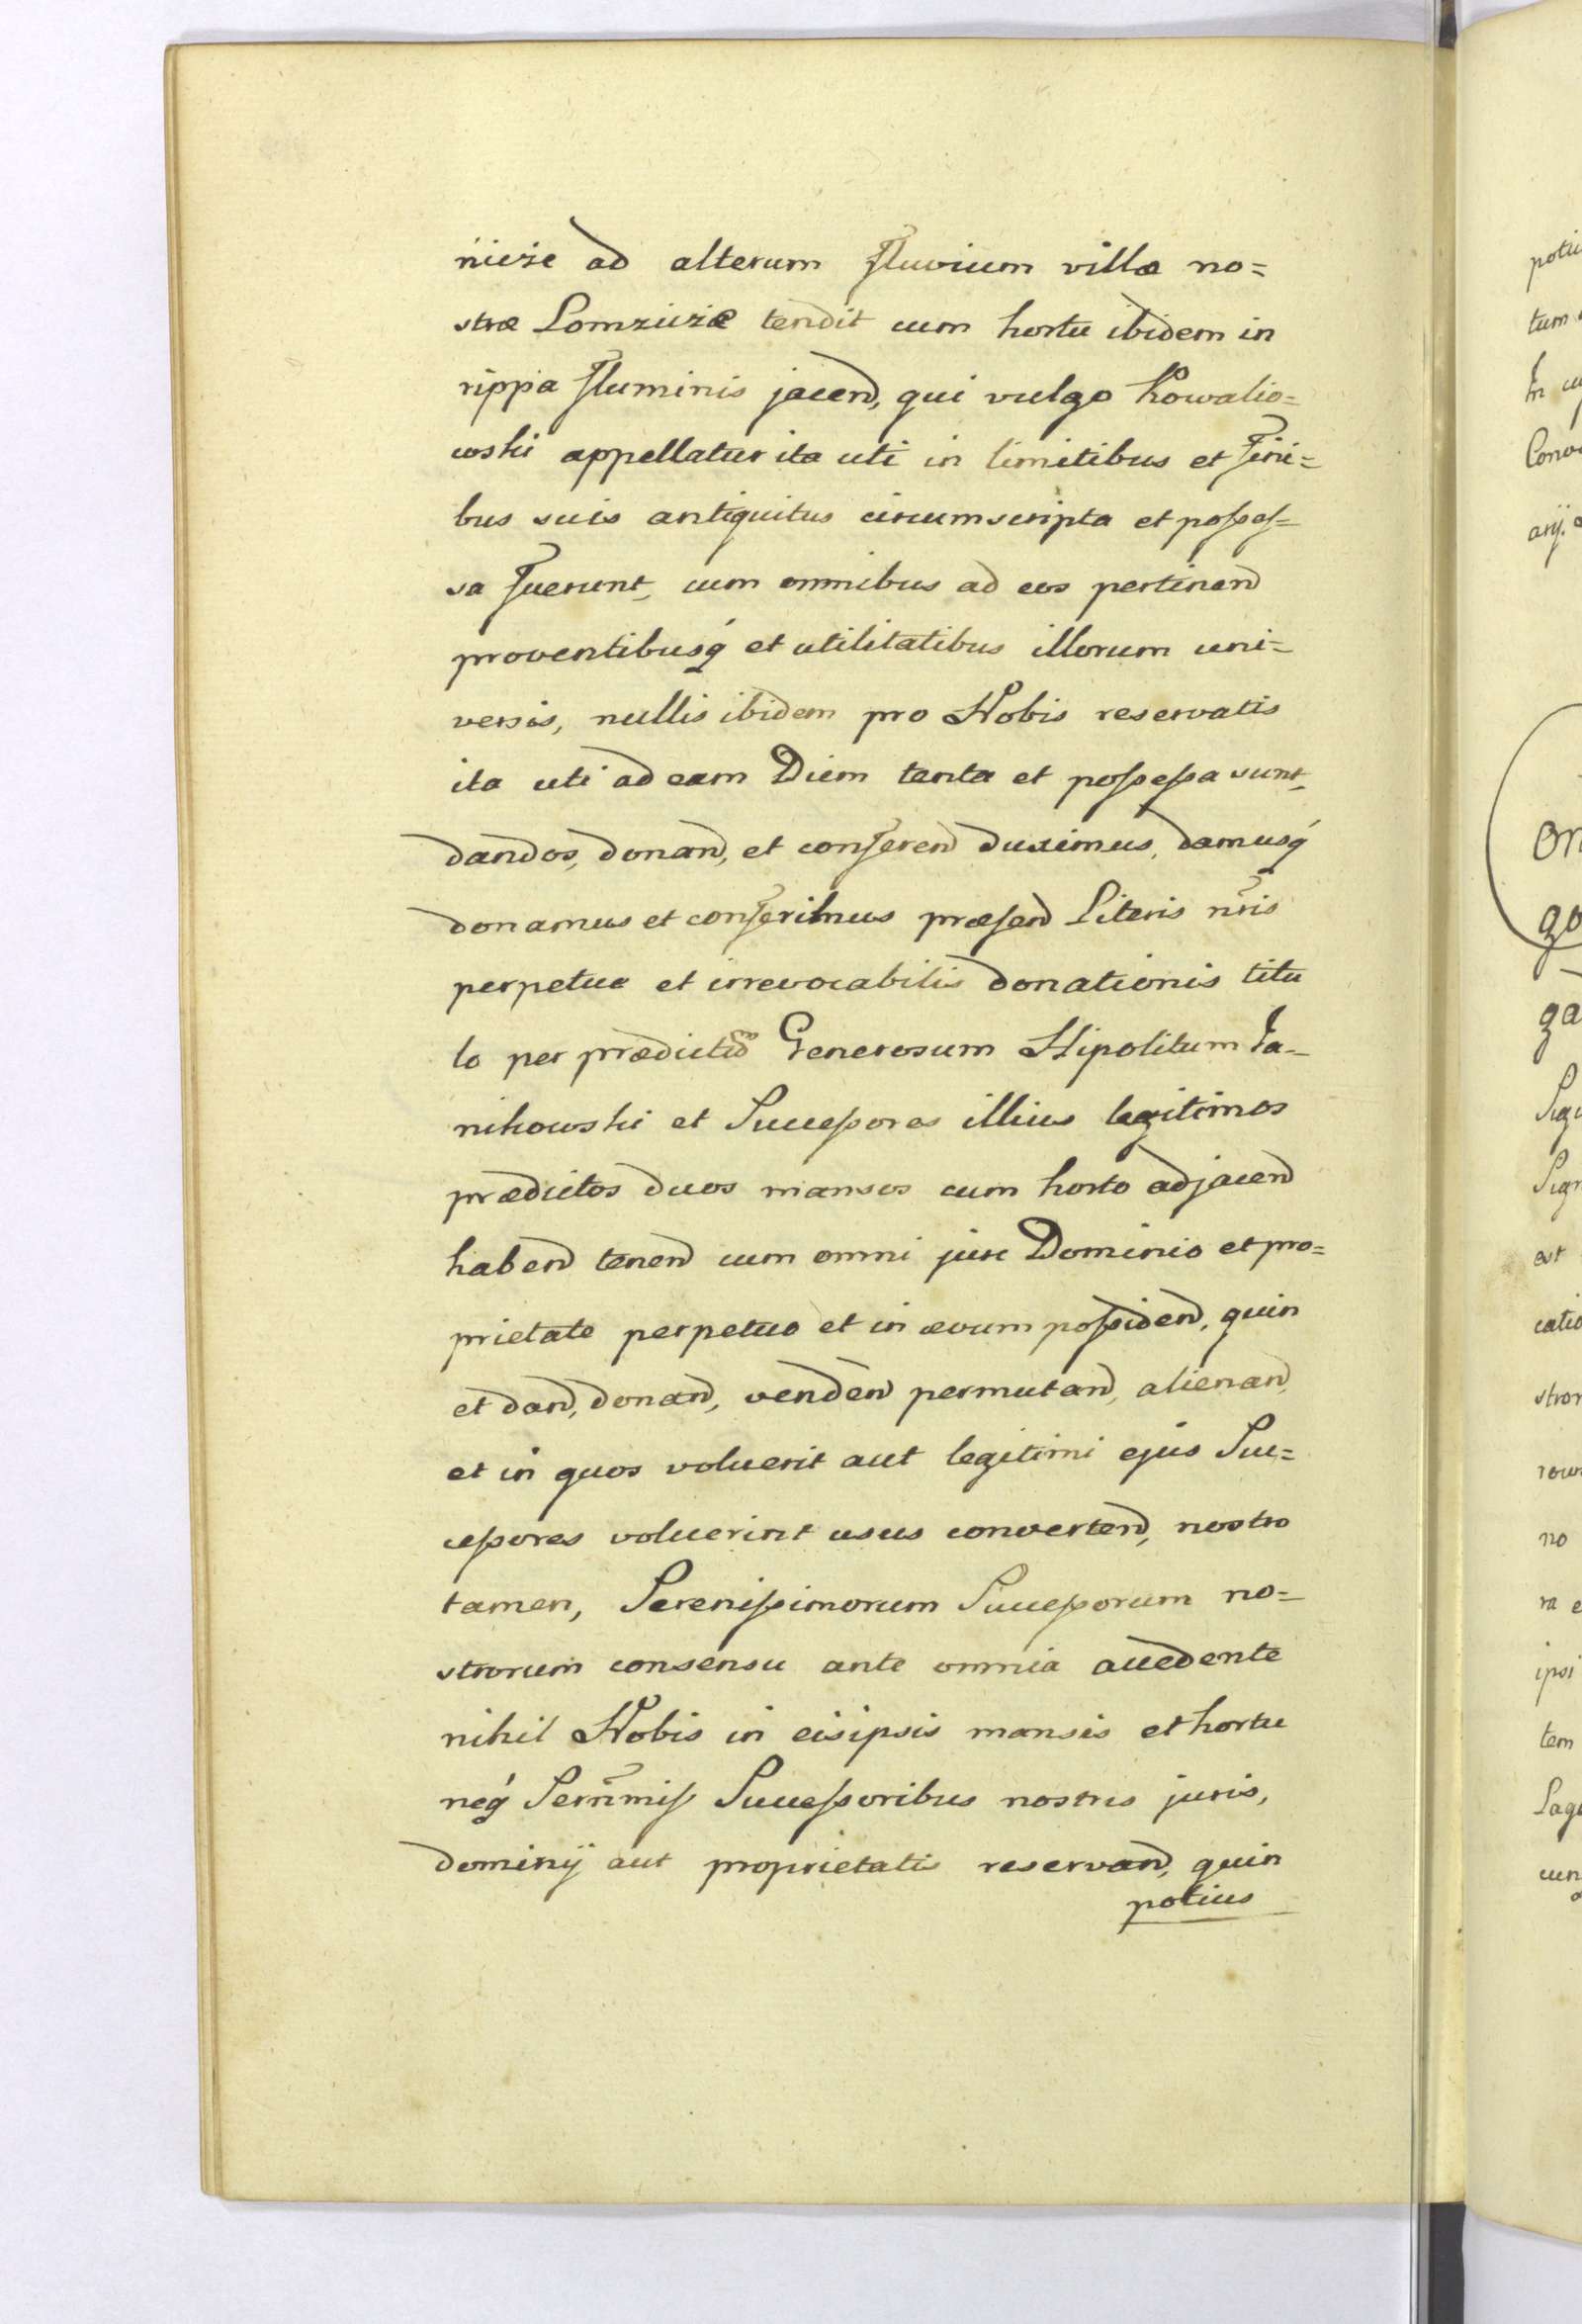 nicze ad alterum fluvium villæ no=
stræ Lomziczæ tendit cum hortu ibidem in
rippa fluminis jacend, qui vulgo Kowalio=
wski appellatur ita uti in limitibus et fini=
bus suis antiquitus circumscripta et posses=
sa fuerunt, cum omnibus ad eos pertinend
proventibusq́ et utilitatibus illorum uni=
versis, nullis ibidem pro Nobis reservatis
ita uti ad eam Diem tenta et possessa sunt,
dandos, donand, et conferend duximus, damusq́
donamus et conferimus præsend Literis nr̃is
perpetuæ et irrevocabilis donationis titu
lo per prædictũ Generosum Hipolitum Ja=
nikowski et Successores illius legitimos
prædictos duos mansos cum horto adjacend
habend tenend cum omni jure Dominio et pro=
prietate perpetuo et in ævum possidend, quin
et dand, donand, vendend permutand, alienand,
et in quos voluerit aut legitimi ejus Suc=
cessores voluerint usus convertend, nostro
tamen, Serenissimorum Successorum no=
strorum consensu ante omnia accedente
nihil Nobis in eisipsis mansis et hortu
neq́ Sern̄miss Successoribus nostris juris,
dominij aut proprietatis reservand, quin
potius